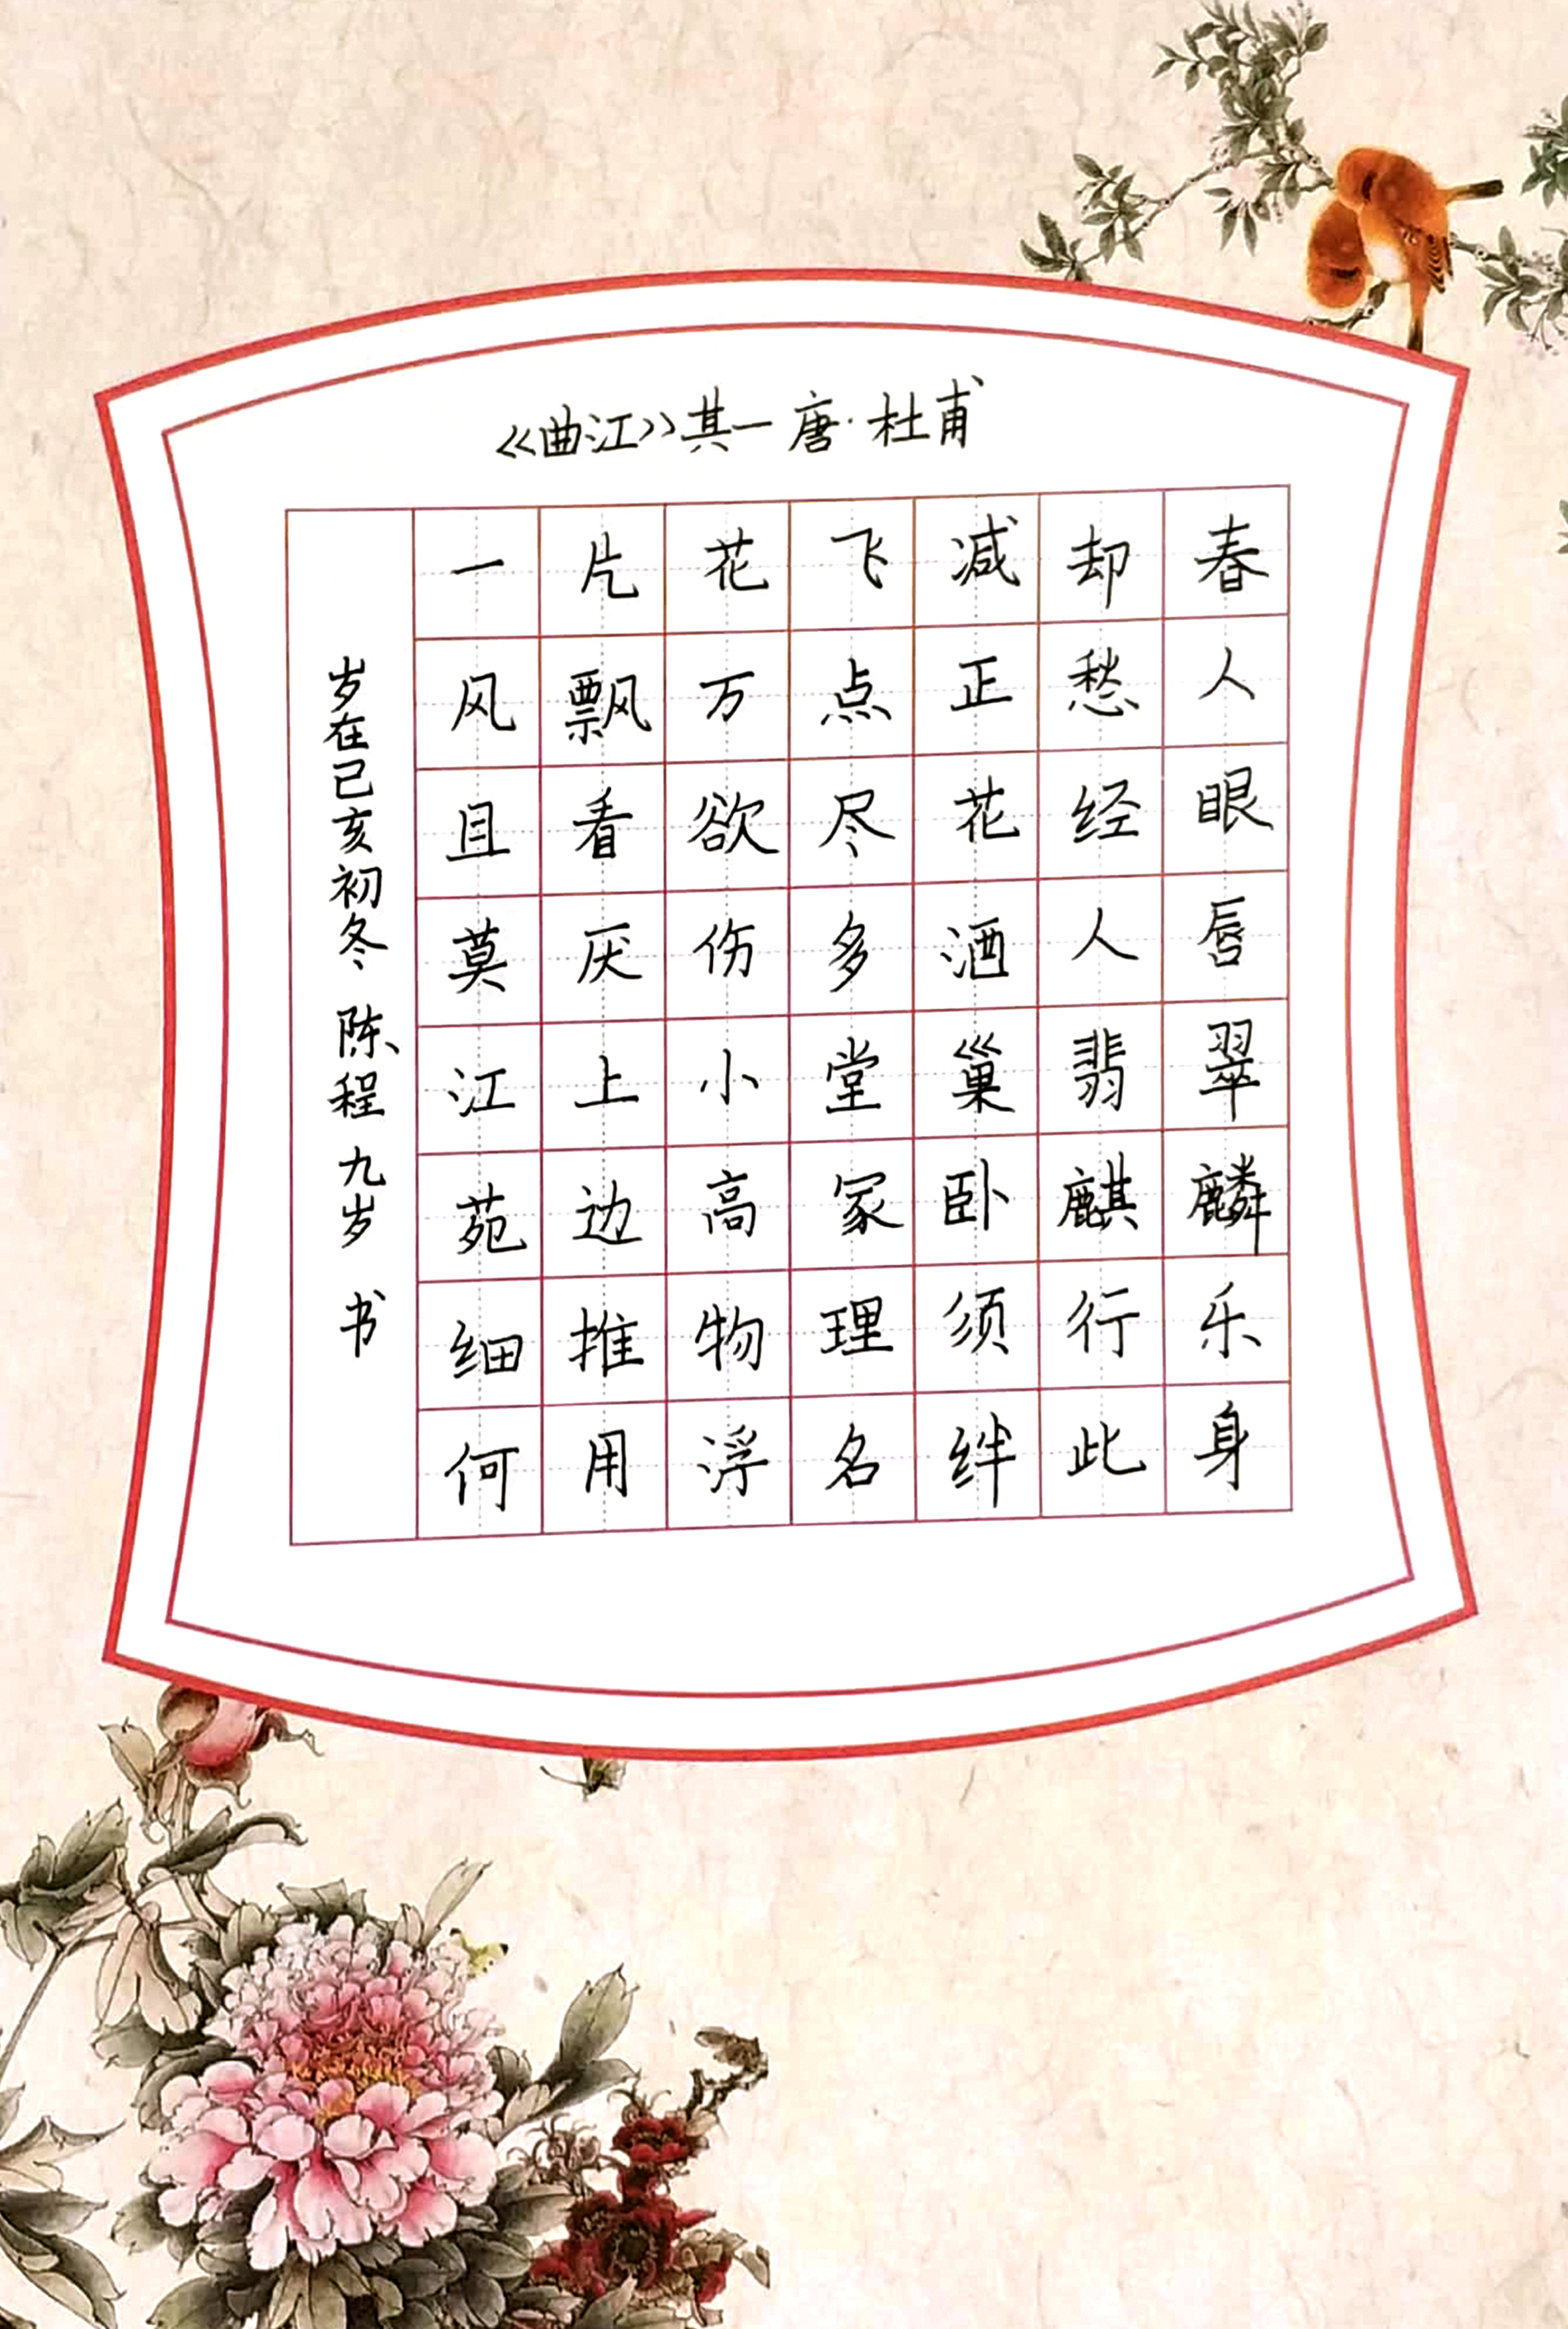 《曲江》其一 唐·杜甫
一片花飞减却春
风飘万点正愁人
且看欲尽花经眼
莫厌伤多酒人唇
江上小堂巢翡翠
苑边高冢卧麒麟
细推物理须行乐
何用浮名绊此身
岁在己亥初冬 陈程 九岁 书